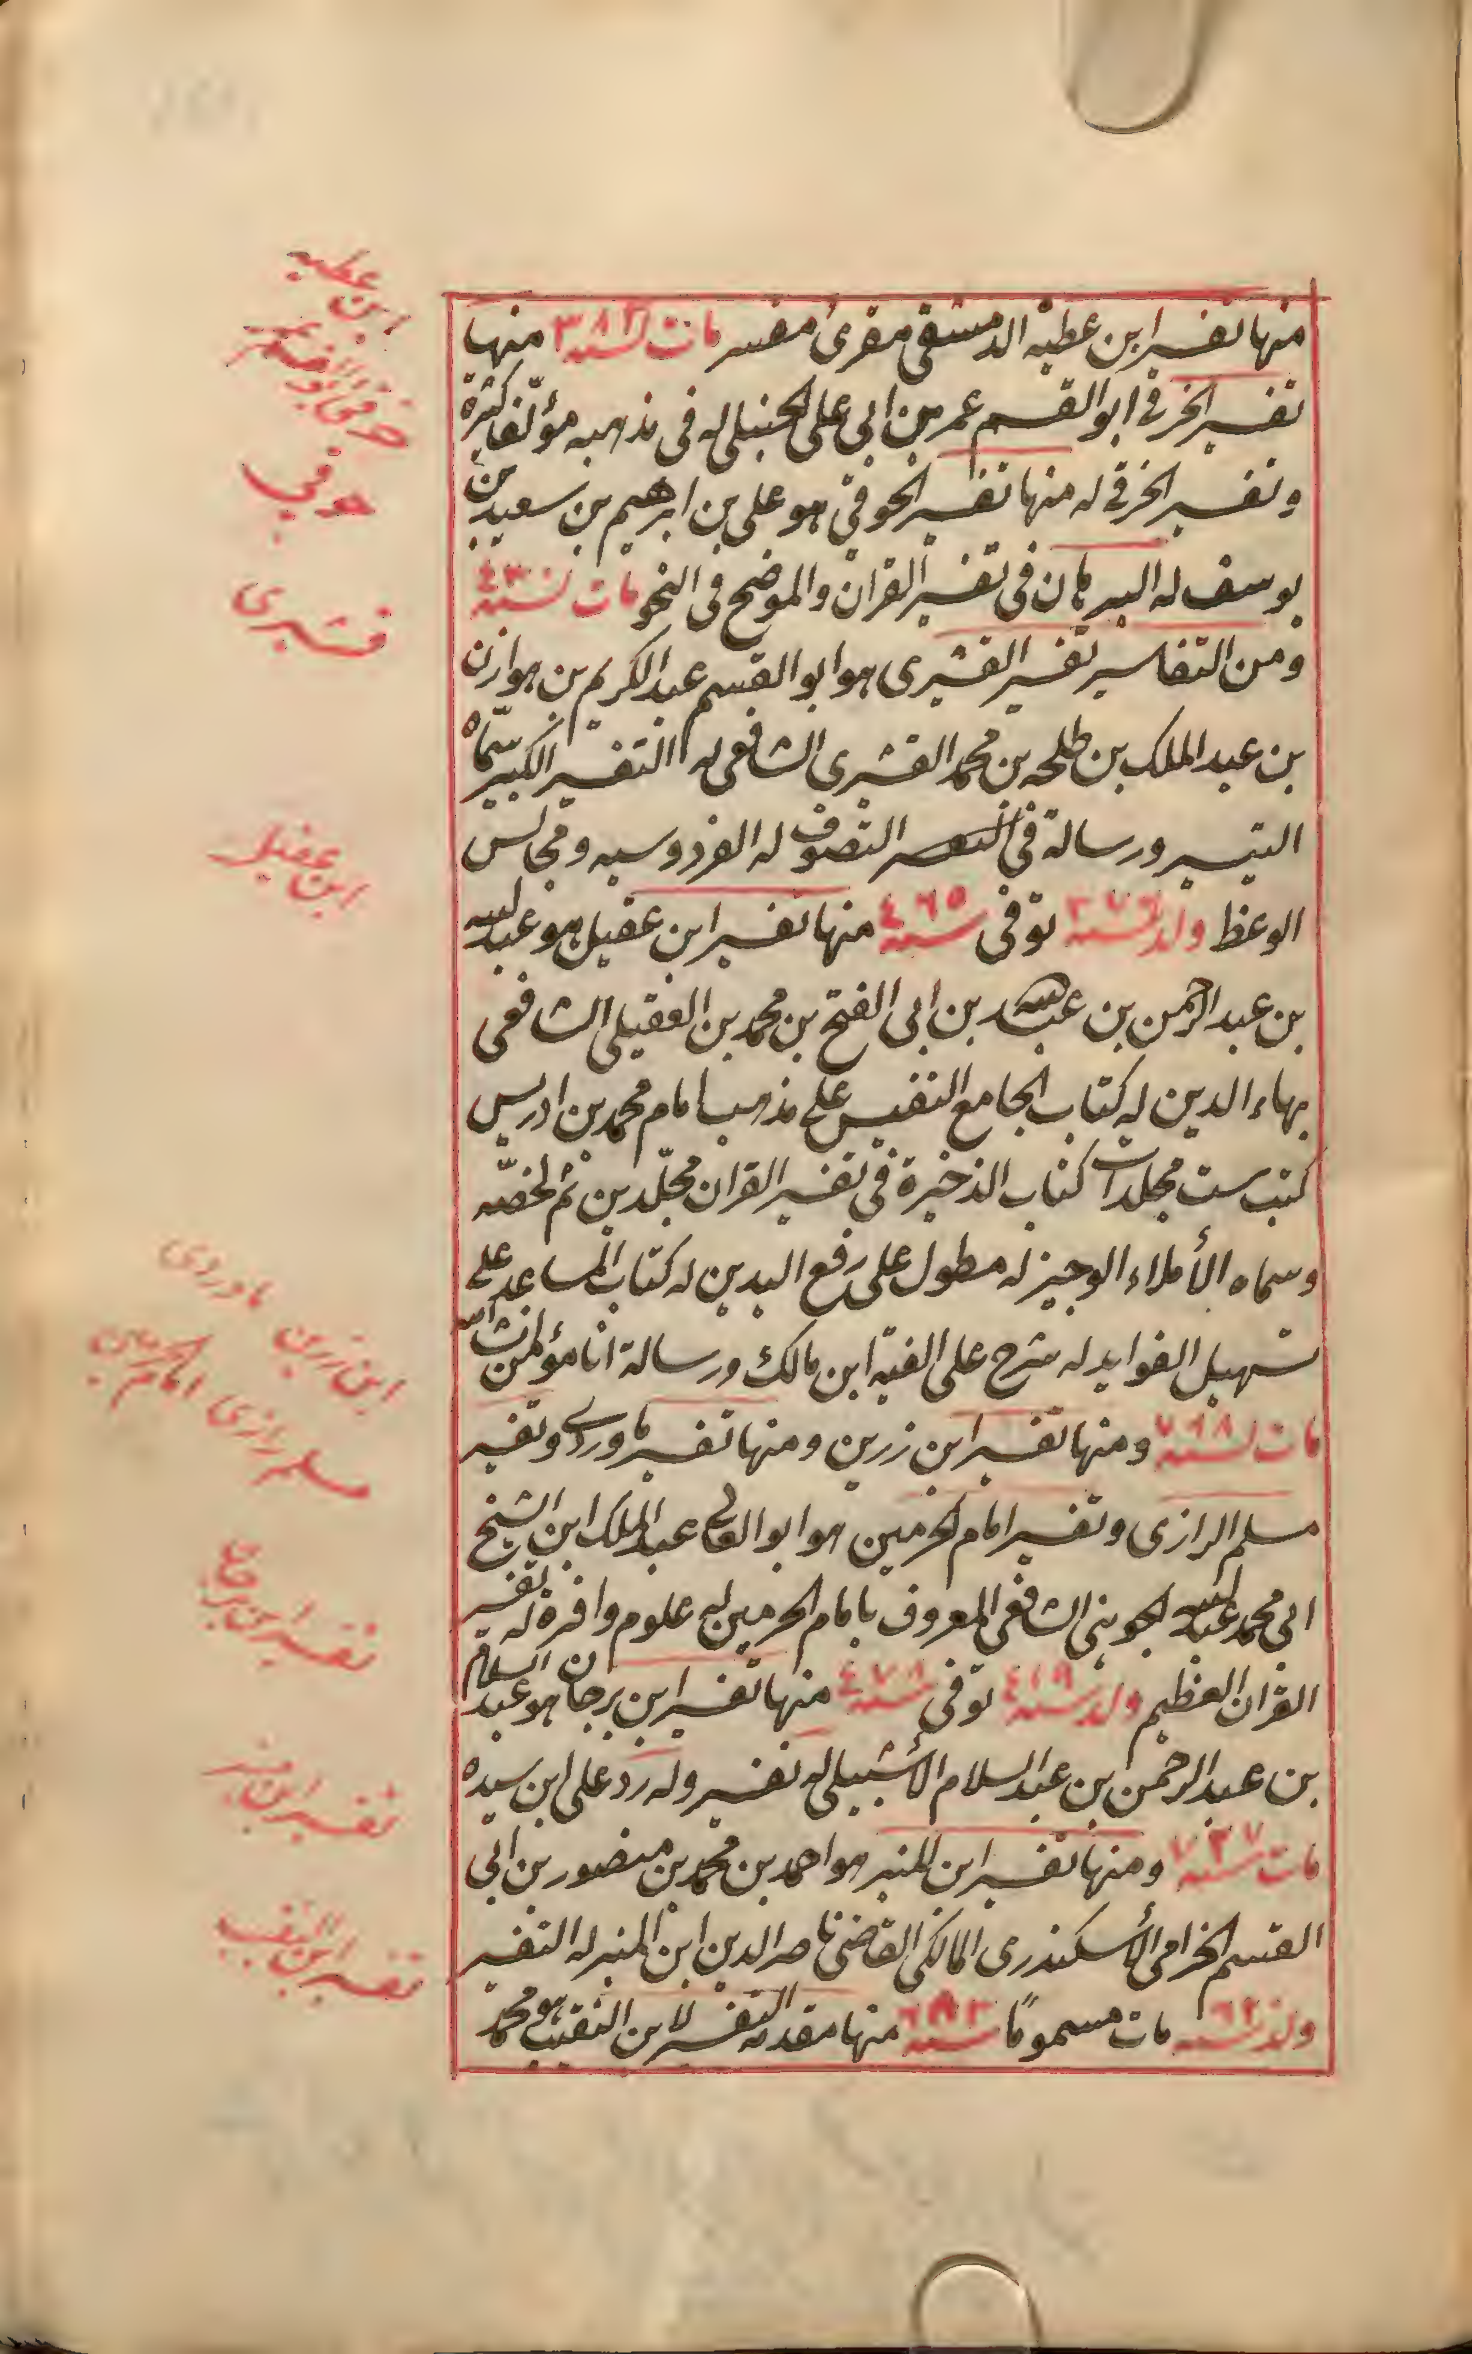 منها تفسير ابن عطية الدمشقي مقرئ مفسر مات لسنة ٣٨٣ منها
تفسير الخرقي ابو القسم عمر بن ابي على الحنبلي له في مذهبه مؤلفا كثيرة
وتفسير الخرقي له منها تفسير الحوفي هو على بن ابرهيم بن سعيد بن
يوسف له البرهان في تفسير القران والموضح في النحو مات لسنة ٤٣٠
ومن التفاسير تفسير القشيرى هو ابو القسم عبد الكريم بن هوازن
بن عبد الملك بن طلحه بن محمد القشيرى الشافعى له التفسير الكبير سماه
التيسير ورسالة في التصوف له الفردوسيه ومجالس
الوعظ ولد لسنة ٣٧٦ توفى سنة ٤٦٥ منها تفسير ابن عقيل هو عبد الله
بن عبد الرحمن بن عبد الله بن ابى الفتح بن محمد بن العقيلى الشافعى
بهاء الدين له كتاب الجامع النفيس على مذهب امام محمد بن ادريس
كتب ست مجلدات كتاب الذخيرة في تفسير القران مجلدين ثم لخصه
وسماه الأملاء الوجيز له مطول على رفع اليدين له كتاب المساعد على
تسهيل الفوايد له شرح على الفية ابن مالك ورسالة انا مؤمن انشاء الله
مات لسنة ٧٦٨ ومنها تفسير ابن زرين ومنها تفسير ماوردى وتفسير
مسلم الرازى وتفسير امام الحرمين هو ابو المعالى عبد الملك ابن الشيخ
ابى محمد عبد الله الجوينى الشافعى المعروف بامام الحرمين له علوم وافرة له تفسير
القران العظيم ولد سنة ٤١٩ توفى سنة ٤٧٨ منها تفسير ابن برجان هو عبد السلام
بن عبد الرحمن بن عبد السلام الأشبيلى له تفسير وله رد على ابن سيده
مات سنة ٧٣٧ ومنها تفسير ابن المنير هو احمد بن محمد بن منصور بن ابى
القسم الخرامى الأسكندرى المالكى القاضى ناصر الدين ابن المنير له التفسير
ولد سنة ٦٢ مات مسموما سنة ٦٨٣ منها مقدمة التفسير لابن النقيب هو محمد
ابن عطيه
حوفي
قشيرى
ابن عقيل
ابن زرين ماوردى
مسلم رازى امام الحرمين
تفسير ابن برجان
تفسير ابن منير
تفسير ابن النقيب